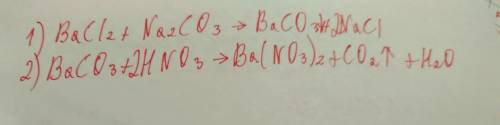 1) BaCl2 + Na2CO3 → BaCO3↓+2NaCl
2) BaCO3+2HNO3 → Ba(NO3)2+CO2↑ +H2O